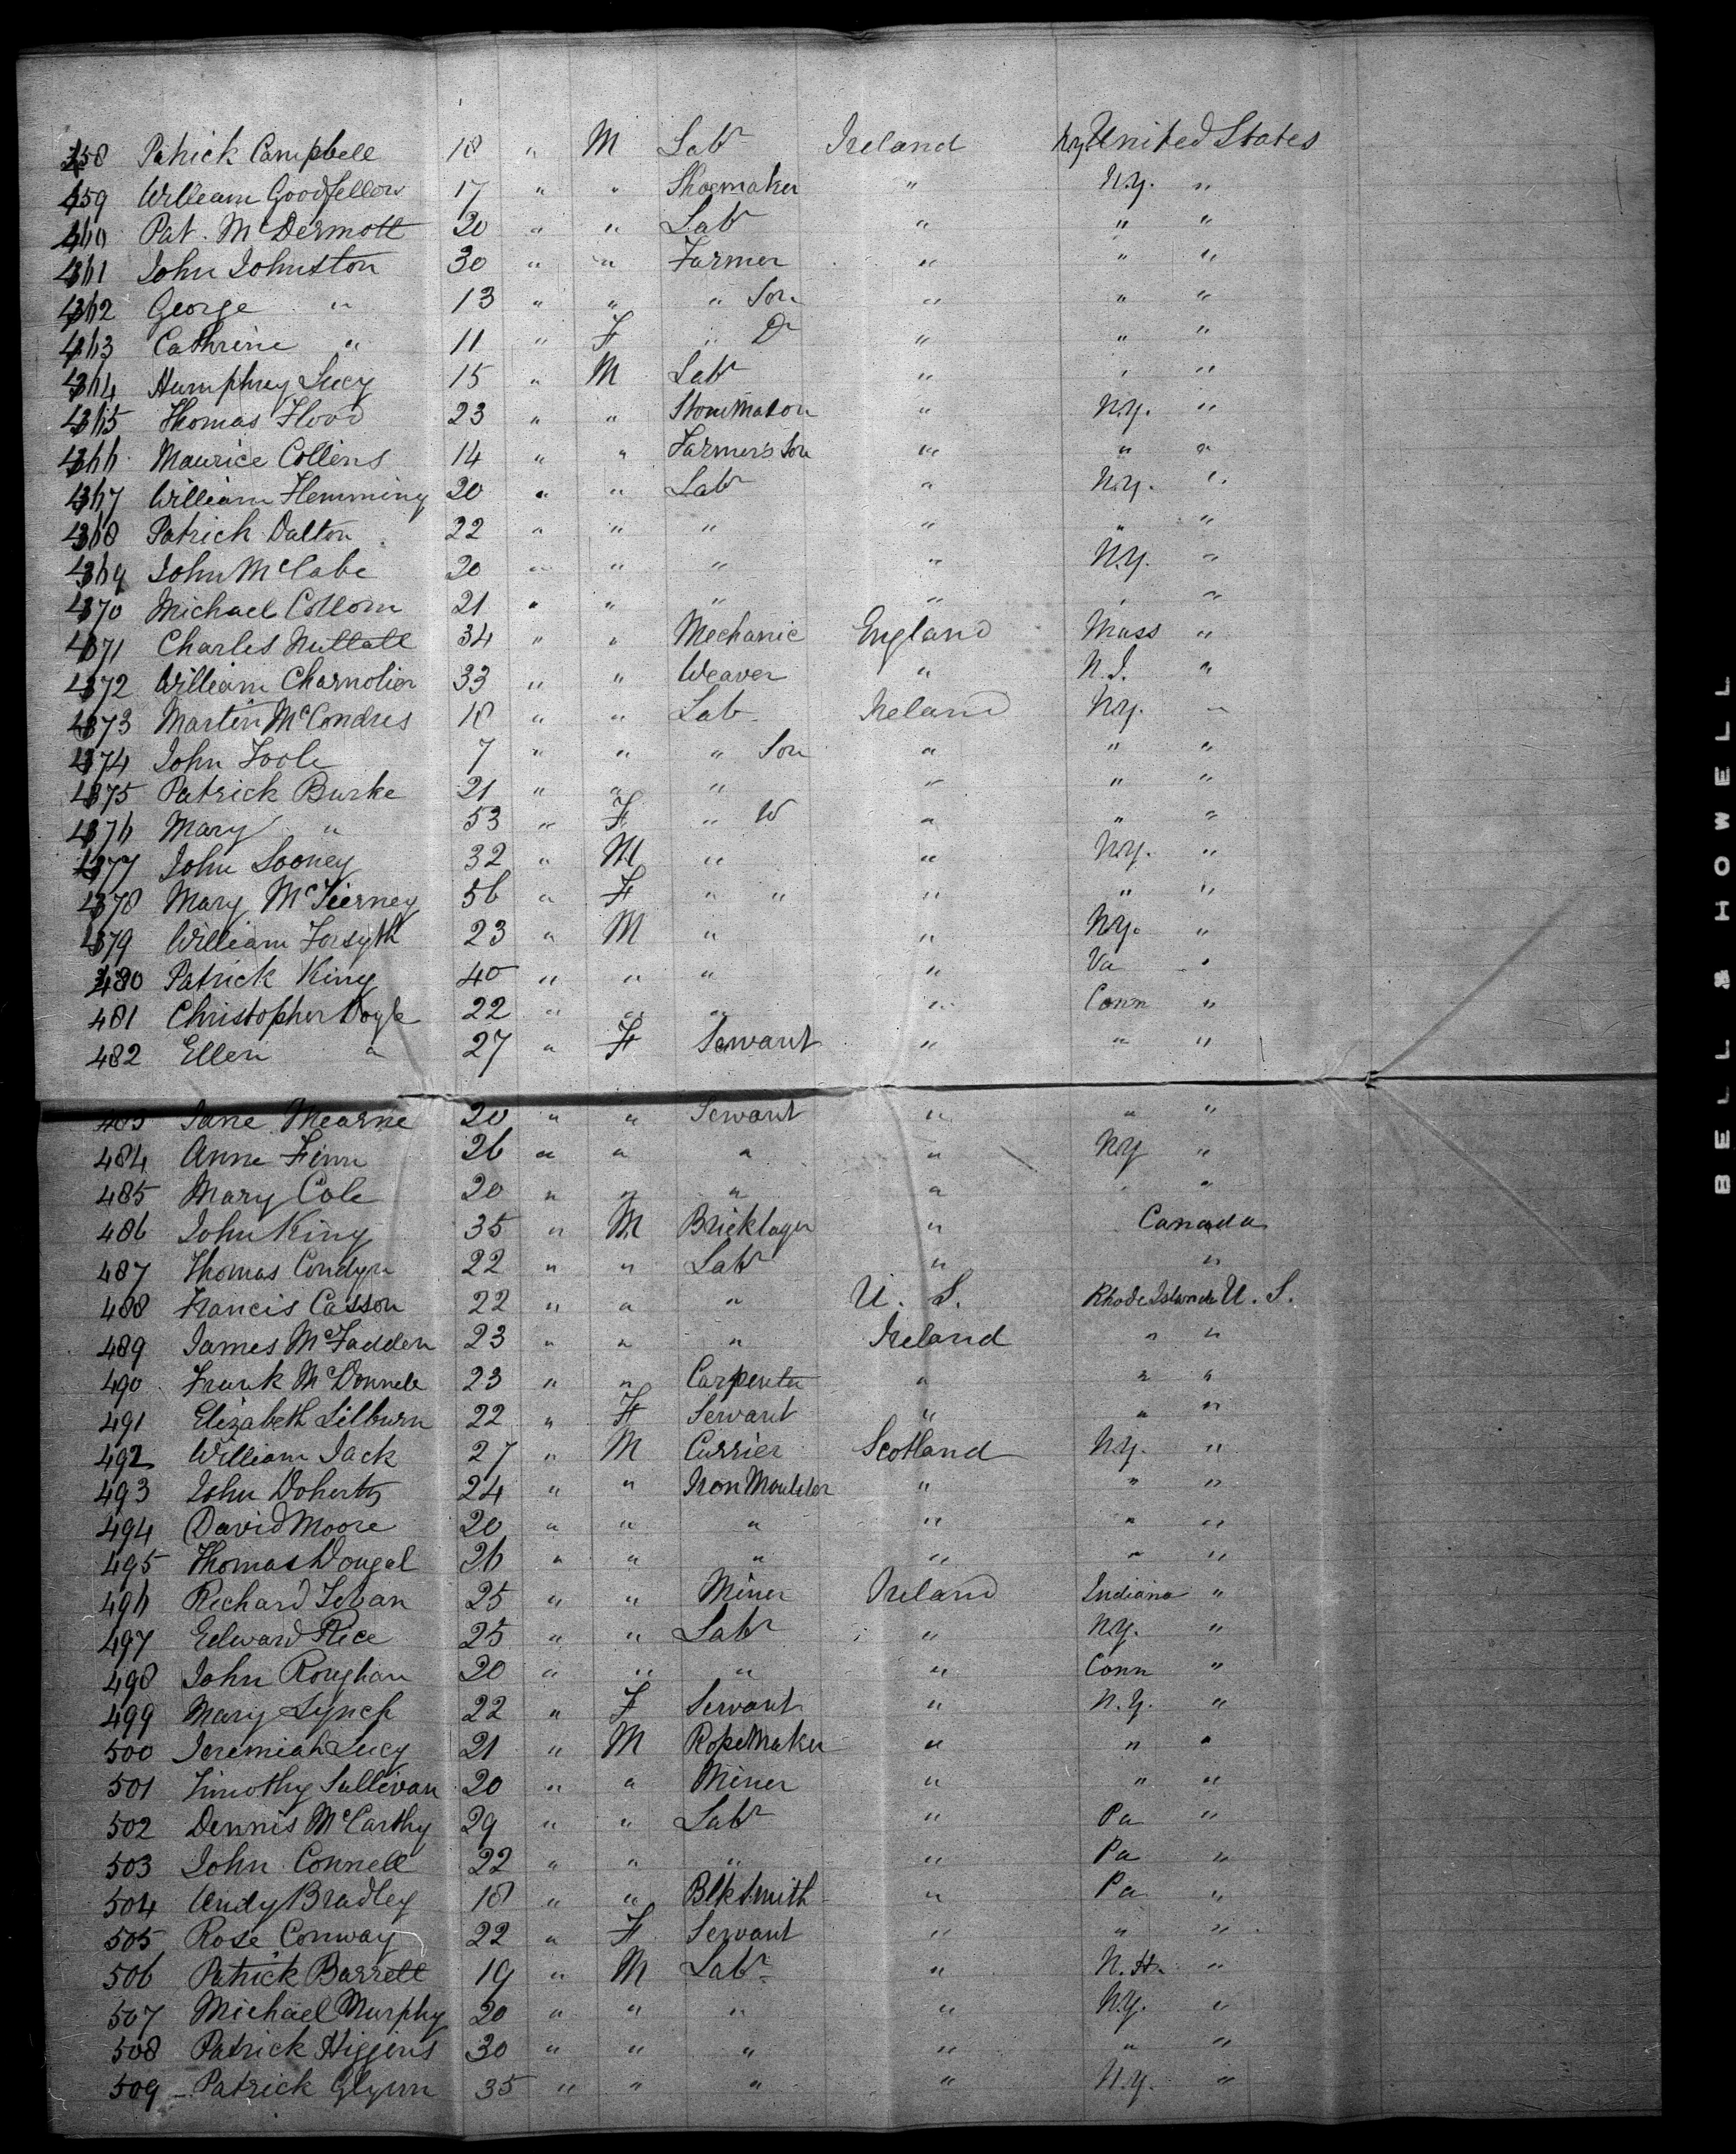 458 Patrick Campbell 18 " M Labr Ireland N.Y. United States
459 William Goodfellow 17 " " Shoemaker " N.Y. "
460 Pat. McDermott 20 " " Labr " " "
461 John Johnston 30 " " Farmer " " "
462 George " 13 " " " Son " " "
463 Cathrine " 11 " F " D " " "
464 Humphrey Lucy 15 " M Labr " " "
465 Thomas Flood 23 " " Stone Mason " N.Y. "
466 Maurice Collins 14 " " Farmer's Son " " "
467 William Flemming 20 " " Labr " N.Y. "
468 Patrick Dalton 22 " " " " " "
469 John McCabe 20 " " " " N.Y. "
470 Michael Collom 21 " " " " " "
471 Charles Nuttall 34 " " Mechanic England Mass "
472 William Charnolier 33 " " Weaver " N.J. "
473 Martin McCondres 18 " " Lab Ireland N.Y. "
474 John Toole 7 " " " Son " " "
475 Patrick Burke 21 " " " " " "
476 Mary " 53 " F " W " " "
477 John Looney 32 " M " " N.Y. "
478 Mary McTierney 56 " F " " " " "
479 William Forsyth 23 " M " " N.Y. "
480 Patrick King 40 " " " " Va "
481 Christopher Doyle 22 " " " " Conn "
482 Ellen " 27 " F Servant " " "
483 Jane Mearne 20 " " Servant " " "
484 Anne Finn 26 " " " " NY "
485 Mary Cole 20 " " " " " "
486 John King 35 " M Bricklayer " Canada
487 Thomas Condyn 22 " " Labr " "
488 Francis Casson 22 " " " U. S. Rhode Island U. S.
489 James McFadden 23 " " " Ireland " "
490 Frank McDonnell 23 " " Carpenter " " "
491 Elizabeth Lilburn 22 " F Servant " " "
492 William Jack 27 " M Currier Scotland N.Y. "
493 John Doherty 24 " " Iron Moulder " " "
494 David Moore 20 " " " " " "
495 Thomas Dougal 26 " " " " " "
496 Richard 25 " " Miner Ireland Indiana "
497 Edward Rice 25 " " Labr " N.Y. "
498 John Roughan 20 " " " " Conn "
499 Mary Lynch 22 " F Servant " N.Y. "
500 Jeremiah Lucy 21 " M RopeMaker " " "
501 Timothy Sullivan 20 " " Miner " " "
502 Dennis McCarthy 29 " " Labr " Pa "
503 John Connell 22 " " " " Pa "
504 Andy Bradley 18 " " Blksmith " Pa "
505 Rose Conway 22 " F Servant " " "
506 Patrick Barrett 19 " M Labr " N.H. "
507 Michael Murphy 20 " " " " N.Y. "
508 Patrick Higgins 30 " " " " " "
509 Patrick Glynn 35 " " " " N.Y. "
BELL & HOWELL